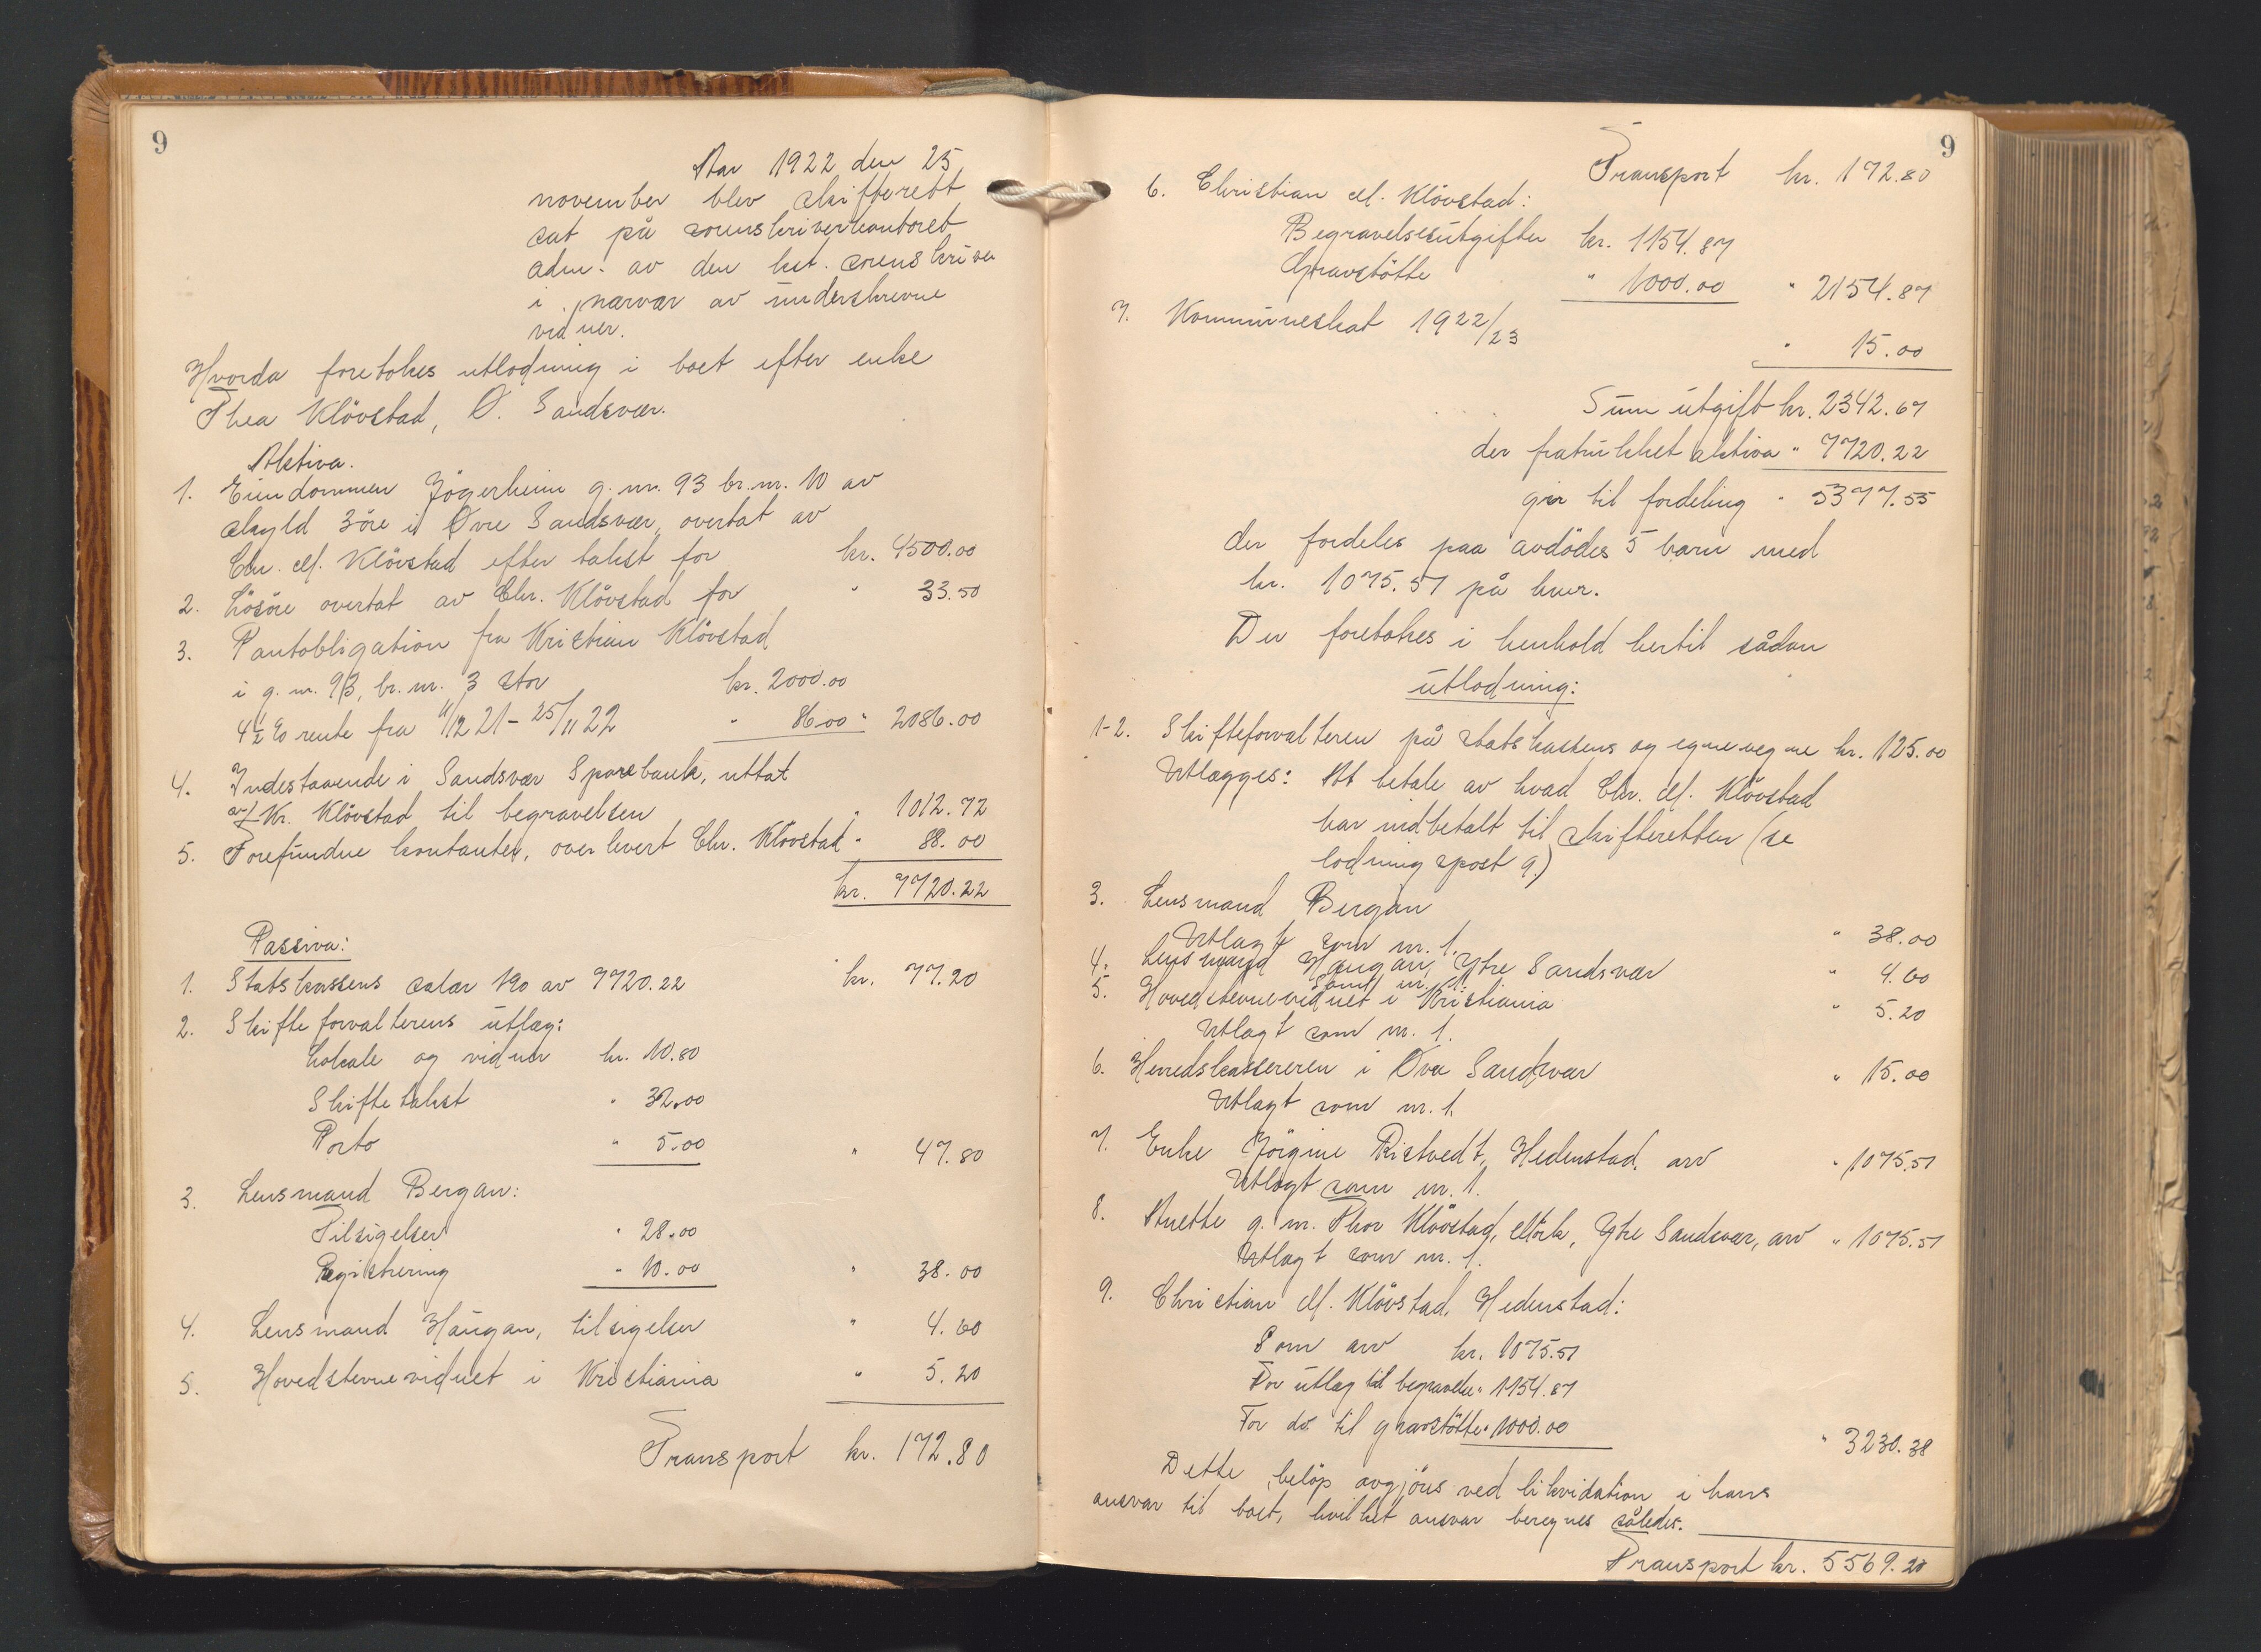 9
Aar 1922 den 25
november blev skifterett
sat på sorenskriverkontoret
adm. av den kst. sorenskriver
i nærvær av underskrevne
vidner.
Hvorda foretokes utlodning i boet efter enke
Thea Klövstad, Ø. Sandsvær.
Aktiva.
1. Eiendommen Jögerheim g. nr. 93 br. nr. 10 av
skyld 3 öre i Øvre Sandsvær, overtat av
Chr. M. Klövstad efter takst for kr. 4500.00
2. Lösöre overtat av Chr. Klövstad for " 33.50
3. Pantobligation fra Kristian Klövstad
i g. nr. 93, br. nr. 3 stor kr. 2000.00
4½ % rente fra 11/12 21 - 25/11 22 " 86.00 " 2086.00
4. Indestaaende i Sandsvær Sparebank, uttat
av Kr. Klövstad til begravelsen " 1012.72
5. Forefundne kontanter, overlevert Chr. Klövstad " 88.00
kr. 7720.22
Passiva:
1. Statskassens salær 1% av 7720.22 kr. 77.20
2. Skifteforvalterens utlæg:
Lokale og vidner kr. 10.80
Skiftetakst " 32.00
Porto " 5.00 " 47.80
3. Lensmand Bergan:
Tilsigelser " 28.00
Registrering " 10.00 " 38.00
4. Lensmand Haugan, tilsigelser " 4.60
5. Hovedstevnevidnet i Kristiania " 5.20
Transport kr. 172.80
9
Transport kr. 172.80
6. Christian M. Klövstad:
Begravelsesutgifter kr. 1154.87
Gravstötte " 1000.00 " 2154.87
7. Kommuneskat 1922/23 " 15.00
Sum utgift kr. 2342.67
der fratrukket aktiva " 7720.22
gir til fordeling " 5377.55
der fordeles paa avdödes 5 barn med
kr. 1075.51 på hver.
Der foretokes i henhold hertil sådan
utlodning:
1-2. Skifteforvalteren på statskassens og egne vegne kr. 125.00
Utlægges: At betale av hvad Chr. M. Klövstad
har indbetalt til skifteretten (se
lodningspost 9.)
3. Lensmand Bergan " 38.00
Utlagt som nr. 1.
4. Lensmand Haugan, Ytre Sandsvær " 4.60
Som nr. 1.
5. Hovedstevnevidnet i Kristiania " 5.20
Utlagt som nr. 1.
6. Herredskassereren i Øvre Sandsvær " 15.00
Utlagt som nr. 1.
7. Enke Jörgine Ristvedt, Hedenstad, arv " 1075.51
Utlagt som nr. 1.
8. Anette g. m. Thor Klövstad, Mörk, Ytre Sandsvær, arv " 1075.51
Utlagt som nr. 1.
9. Christian M. Klövstad, Hedenstad:
Som arv kr. 1075.51
For utlæg til begravelse " 1154.87
For do. til gravstötte " 1000.00 " 3230.38
Dette belöp avgjöres ved likvidation i hans
ansvar til boet, hvilket ansvar beregnes således.
Transport kr. 5569.20